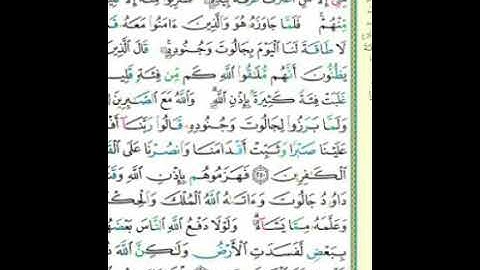 مِّنْهُمْ ۚ فَلَمَّا جَاوَزَهُۥ هُوَ وَٱلَّذِينَ ءَامَنُوا۟ مَعَهُۥ
لَا طَاقَةَ لَنَا ٱلْيَوْمَ بِجَالُوتَ وَجُنُودِهِۦ ۚ قَالَ ٱلَّذِينَ
يَظُنُّونَ أَنَّهُم مُّلَٰقُوا۟ ٱللَّهِ كَم مِّن فِئَةٍ قَلِيـ
غَلَبَتْ فِئَةً كَثِيرَةًۢ بِإِذْنِ ٱللَّهِ ۗ وَٱللَّهُ مَعَ ٱلصَّٰبِرِينَ
وَلَمَّا بَرَزُوا۟ لِجَالُوتَ وَجُنُودِهِۦ قَالُوا۟ رَبَّنَآ أَفْـ
عَلَيْنَا صَبْرًا وَثَبِّتْ أَقْدَامَنَا وَٱنصُرْنَا عَلَى ٱلْقَـ
ٱلْكَٰفِرِينَ ٢٥٠ فَهَزَمُوهُم بِإِذْنِ ٱللَّهِ وَقَتَـ
دَاوُۥدُ جَالُوتَ وَءَاتَىٰهُ ٱللَّهُ ٱلْمُلْكَ وَٱلْحِكْـ
وَعَلَّمَهُۥ مِمَّا يَشَآءُ ۗ وَلَوْلَا دَفْعُ ٱللَّهِ ٱلنَّاسَ بَعْضَهُـ
بِبَعْضٍ لَّفَسَدَتِ ٱلْأَرْضُ وَلَٰكِنَّ ٱللَّهَ